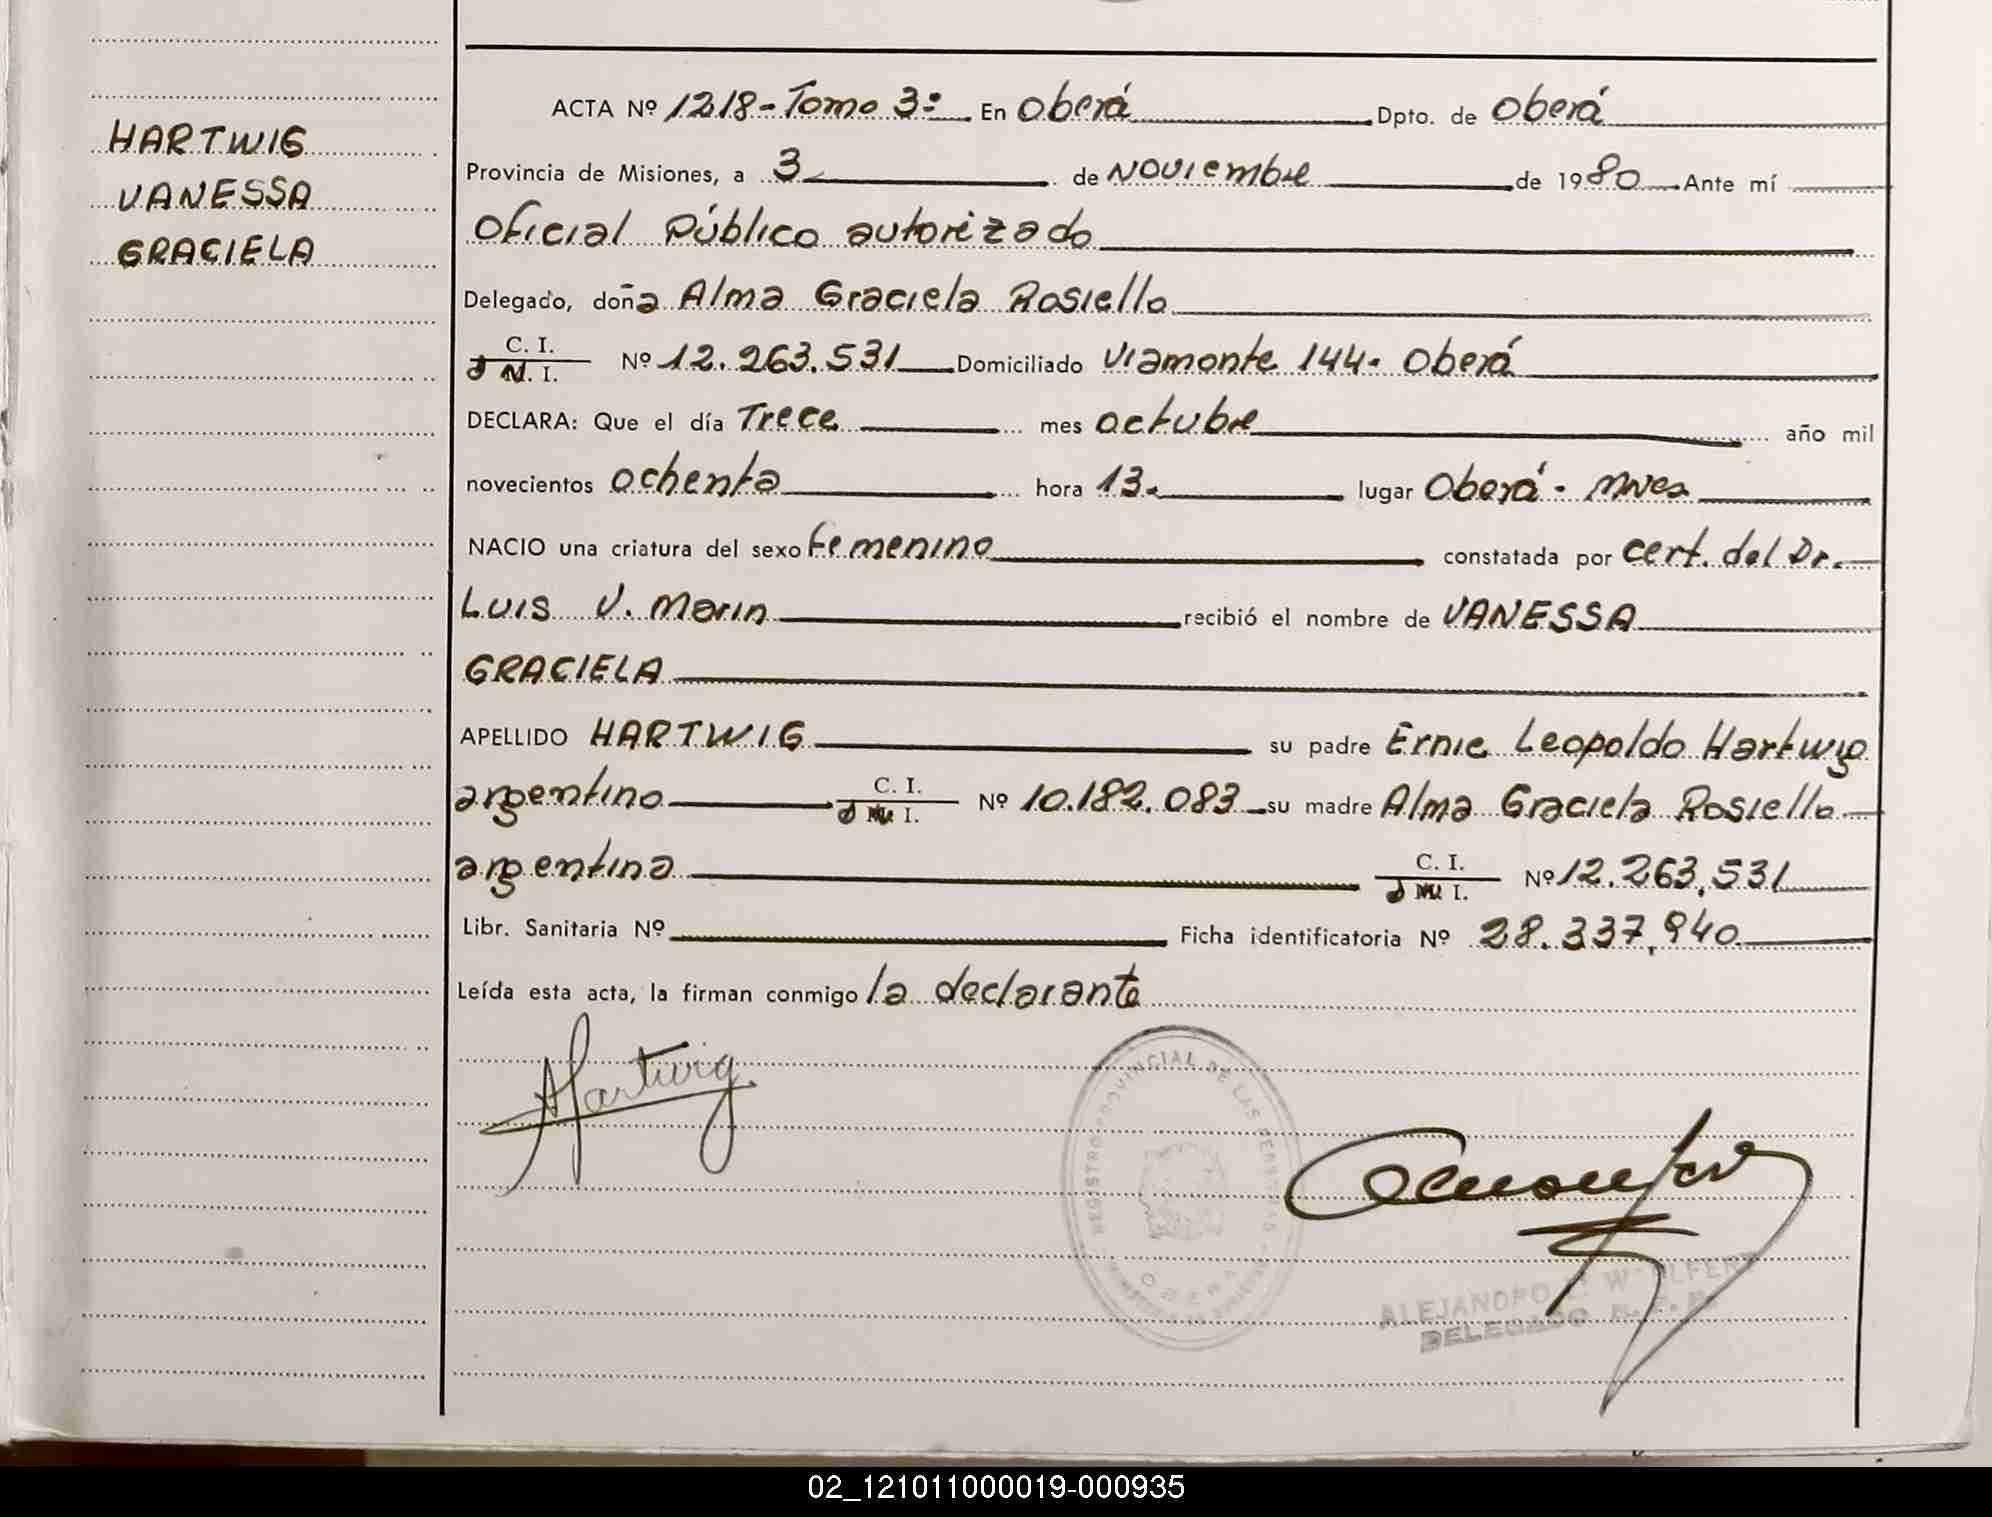 HARTWIG
VANESSA
GRACIELA
ACTA Nº 1218-Tomo 3º En Oberá Dpto. de Oberá
Provincia de Misiones, a 3 de Noviembre de 1980 Ante mí
Oficial Público autorizado
Delegado, doña Alma Graciela Rosiello
C. I.
D N. I. Nº 12.263.531 Domiciliado Viamonte 144- Oberá
DECLARA: Que el día Trece mes octubre año mil
novecientos ochenta hora 13. lugar Oberá - Mnes
NACIO una criatura del sexo femenino constatada por cert. del Dr.
Luis V. Marin recibió el nombre de VANESSA
GRACIELA
APELLIDO HARTWIG su padre Ernie Leopoldo Hartwig
argentino C. I. D N. I. Nº 10.182.083 su madre Alma Graciela Rosiello
argentina C. I. D N. I. Nº 12.263.531
Libr. Sanitaria Nº Ficha identificatoria Nº 28.337.940
Leída esta acta, la firman conmigo la declarante
AHartwig
REGISTRO PROVINCIAL DE LAS PERSONAS
OBERA
ALEJANDRO
DELEGADO R. P. P.
02_121011000019-000935